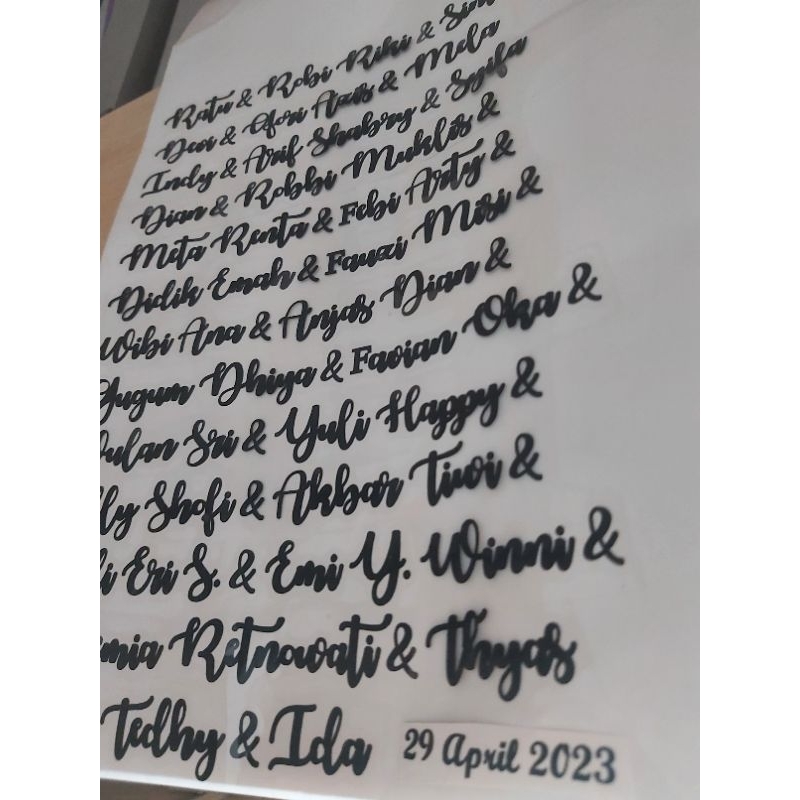 Ratu & Robi Riki &
Devi & Gori Azis & Mela
Indy & Arif Shabry & Syifa
Dian & Robbi Muklis &
Meta Renta & Febi Arty &
Didik Emah & Fauzi Misi &
Wibi Ana & Anjas Dian &
Gugum Dhiya & Favian Oka &
Sri & Yuli Happy &
Shofi & Akbar Tiwi &
Eri S. & Emi Y. Winni &
Retnowati & Thyas
Tedhy & Ida
29 April 2023